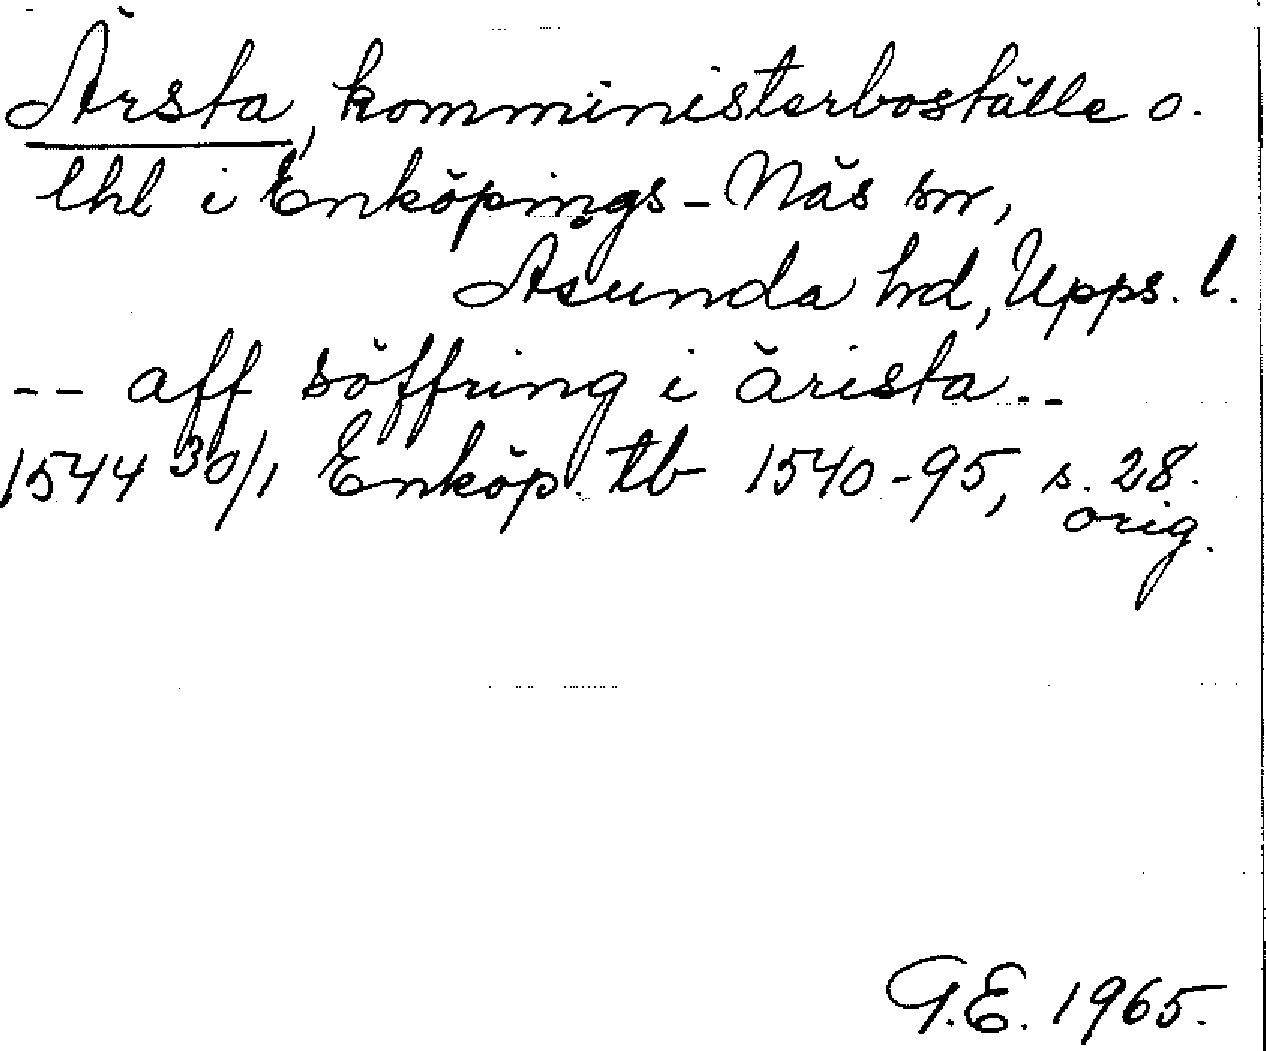 Ärsta, komministerboställe o.
lhl i Enköpings-Näs sn,
Åsunda hd, Upps. l.
-- aff söffring i ärista --
1544 30/1 Enköp. tb 1540-95, s. 28.
orig.
G.E. 1965.